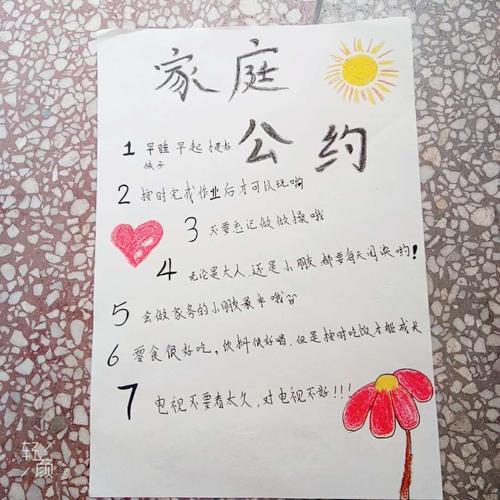 家庭
公约
1 早睡早起才是好
孩子
2 按时完成作业后才可以玩哟
3 不要忘记做做操哦
4 无论是大人,还是小朋友都要每天阅读哟!
5 会做家务的小朋友最牛哦
6 零食很好吃,饮料很好喝,但是按时吃饭才能成长
7 电视不要看太久,对电视不好!!!
轻颜